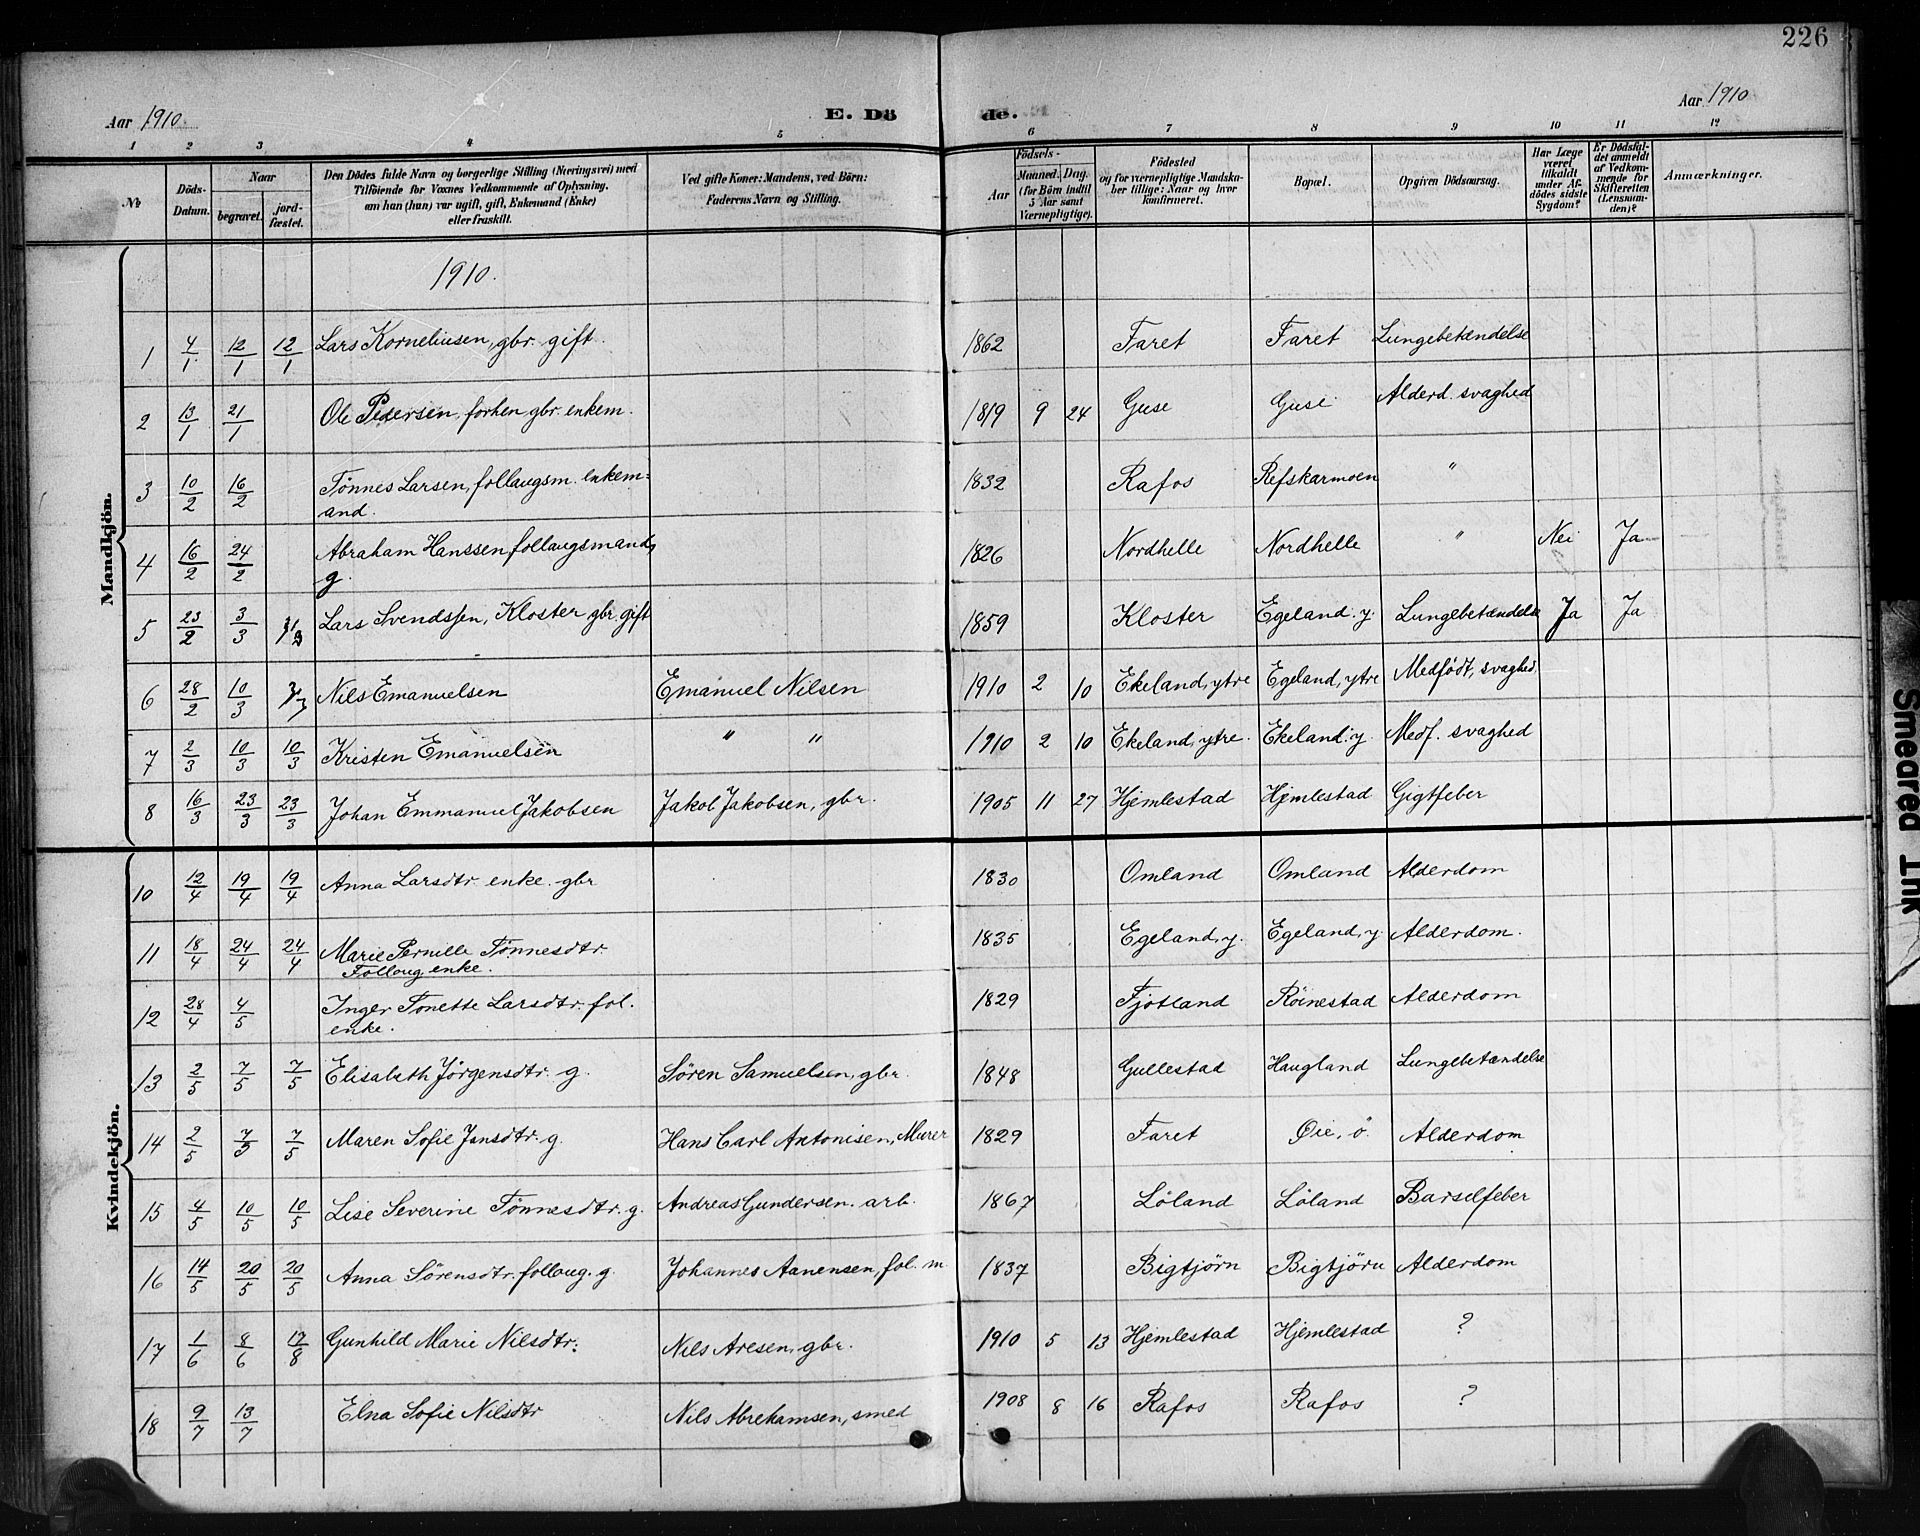 226
Aar 1910. E. Dö de. Aar 1910
1 2 3 4 5 6 7 8 9 10 11 12
No
Döds-Datum.
Naar
begravet.
jord-fæstet.
Den Dödes fulde Navn og borgerlige Stilling (Næringsvei) med
Tilföiende for Voxnes Vedkommende af Oplysning,
om han (hun) var ugift, gift, Enkemand (Enke)
eller fraskilt.
Ved gifte Koner: Mandens, ved Börn:
Faderens Navn og Stilling.
Födsels-
Aar
Maaned. Dag.
(for Börn indtil
5 Aar samt
Værnepligtige).
Födested
og for værnepligtige Mandska-
ber tillige: Naar og hvor
konfirmeret.
Bopæl.
Opgiven Dödsaarsag.
Har Læge
været
tilkaldt
under Af-
dödes sidste
Sygdom?
Er Dödsfal-
det anmeldt
af Vedkom-
mende for
Skifteretten
(Lensman-
den)?
Anmærkninger.
Mandkjön.
1910.
1 4/1 12/1 12/1 Lars Korneliusen, gbr. gift. 1862 Faret Faret Lungebetændelse
2 13/1 21/1 Ole Pedersen, forhen gbr. enkem. 1819 9 24 Guse Guse Alderd. svaghed
3 10/2 16/2 Tønnes Larsen, follaugsm. enkem= 1832 Rafos Refskarmoen "
and.
4 16/2 24/2 Abraham Hanssen follaugsmand, 1826 Nordhelle Nordhelle " Nei Ja
g.
5 23/2 3/3 Lars Svendssen, Kloster gbr. gift 1859 Kloster Egeland. y. Lungebetændelse Ja Ja
6 28/2 10/3 Nils Emanuelsen Emanuel Nilsen 1910 2 10 Ekeland, ytre Egeland, ytre Medfödt, svaghed
7 2/3 10/3 10/3 Kristen Emanuelsen " " 1910 2 10 Ekeland, ytre. Ekeland. y. Medf. svaghed
8 16/3 23/3 23/3 Johan Emmanuel Jakobsen Jakob Jakobsen, gbr. 1905 11 27 Hjemlestad Hjemlestad Gigtfeber
Kvindekjön.
10 12/4 19/4 19/4 Anna Larsdtr enke. gbr 1830 Omland Omland Alderdom
11 18/4 24/4 24/4 Marie Pernille Tønnesdtr. 1835 Egeland, y. Egeland, y. Alderdom.
Follaug enke.
12 28/4 4/5 Inger Tonette Larsdtr. fol. 1829 Fjotland Röinestad Alderdom
enke.
13 2/5 7/5 7/5 Elisabeth Jörgensdtr. g. Sören Samuelsen, gbr. 1848 Gullestad Haugland Lungebetændelse
14 2/5 7/5 7/5 Maren Sofie Jansdtr. g. Hans Carl Antonisen, Murer 1829 Faret Øie, ö. Alderdom
15 4/5 10/5 10/5 Lise Severine Tønnesdtr. g. Andreas Gundersen. arb. 1867 Löland Löland Barselfeber
16 14/5 20/5 20/5 Anna Sörensdtr. follaug. g. Johannes Aanensen, fol. m 1837 Bigtjörn Bigtjörn Alderdom
17 1/6 8/6 17/8 Gunhild Marie Nilsdtr. Nils Aresen, gbr. 1910 5 13 Hjemlestad Hjemlestad ?
18 9/7 13/7 Elna Sofie Nilsdtr Nils Abrehamsen, smed 1908 8 16 Rafos Rafos ?
Smeared Ink